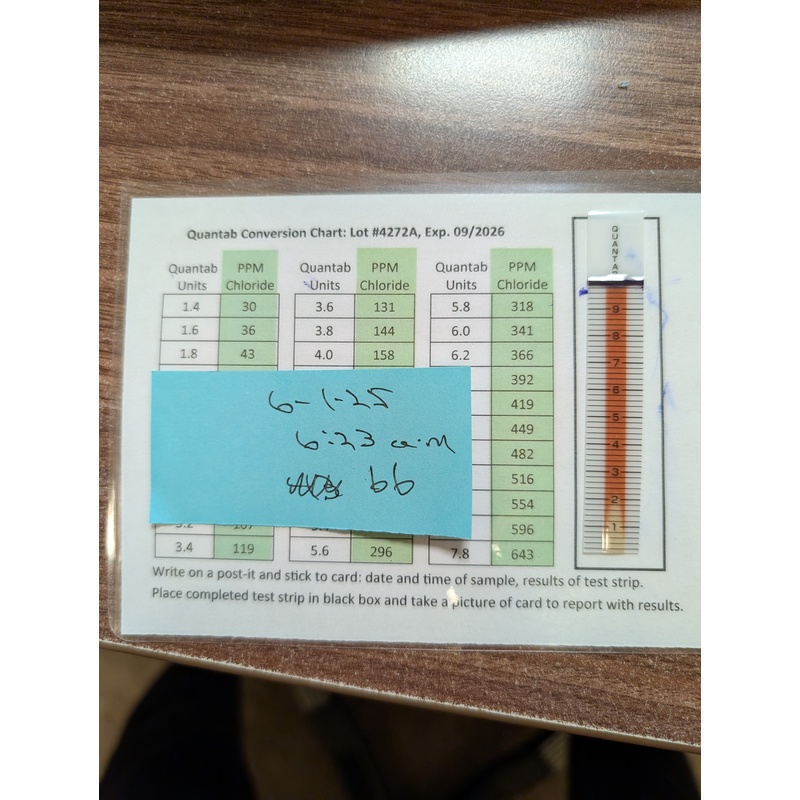 Quantab Conversion Chart: Lot #4272A, Exp. 09/2026
Quantab Units PPM Chloride Quantab Units PPM Chloride Quantab Units PPM Chloride
1.4 30 3.6 131 5.8 318
1.6 36 3.8 144 6.0 341
1.8 43 4.0 158 6.2 366
392
419
449
482
516
554
596
3.4 119 5.6 296 7.8 643
6-1-25
6:23 a.m
66
QUANTA
9
8
7
6
5
4
3
2
1
Write on a post-it and stick to card: date and time of sample, results of test strip.
Place completed test strip in black box and take a picture of card to report with results.